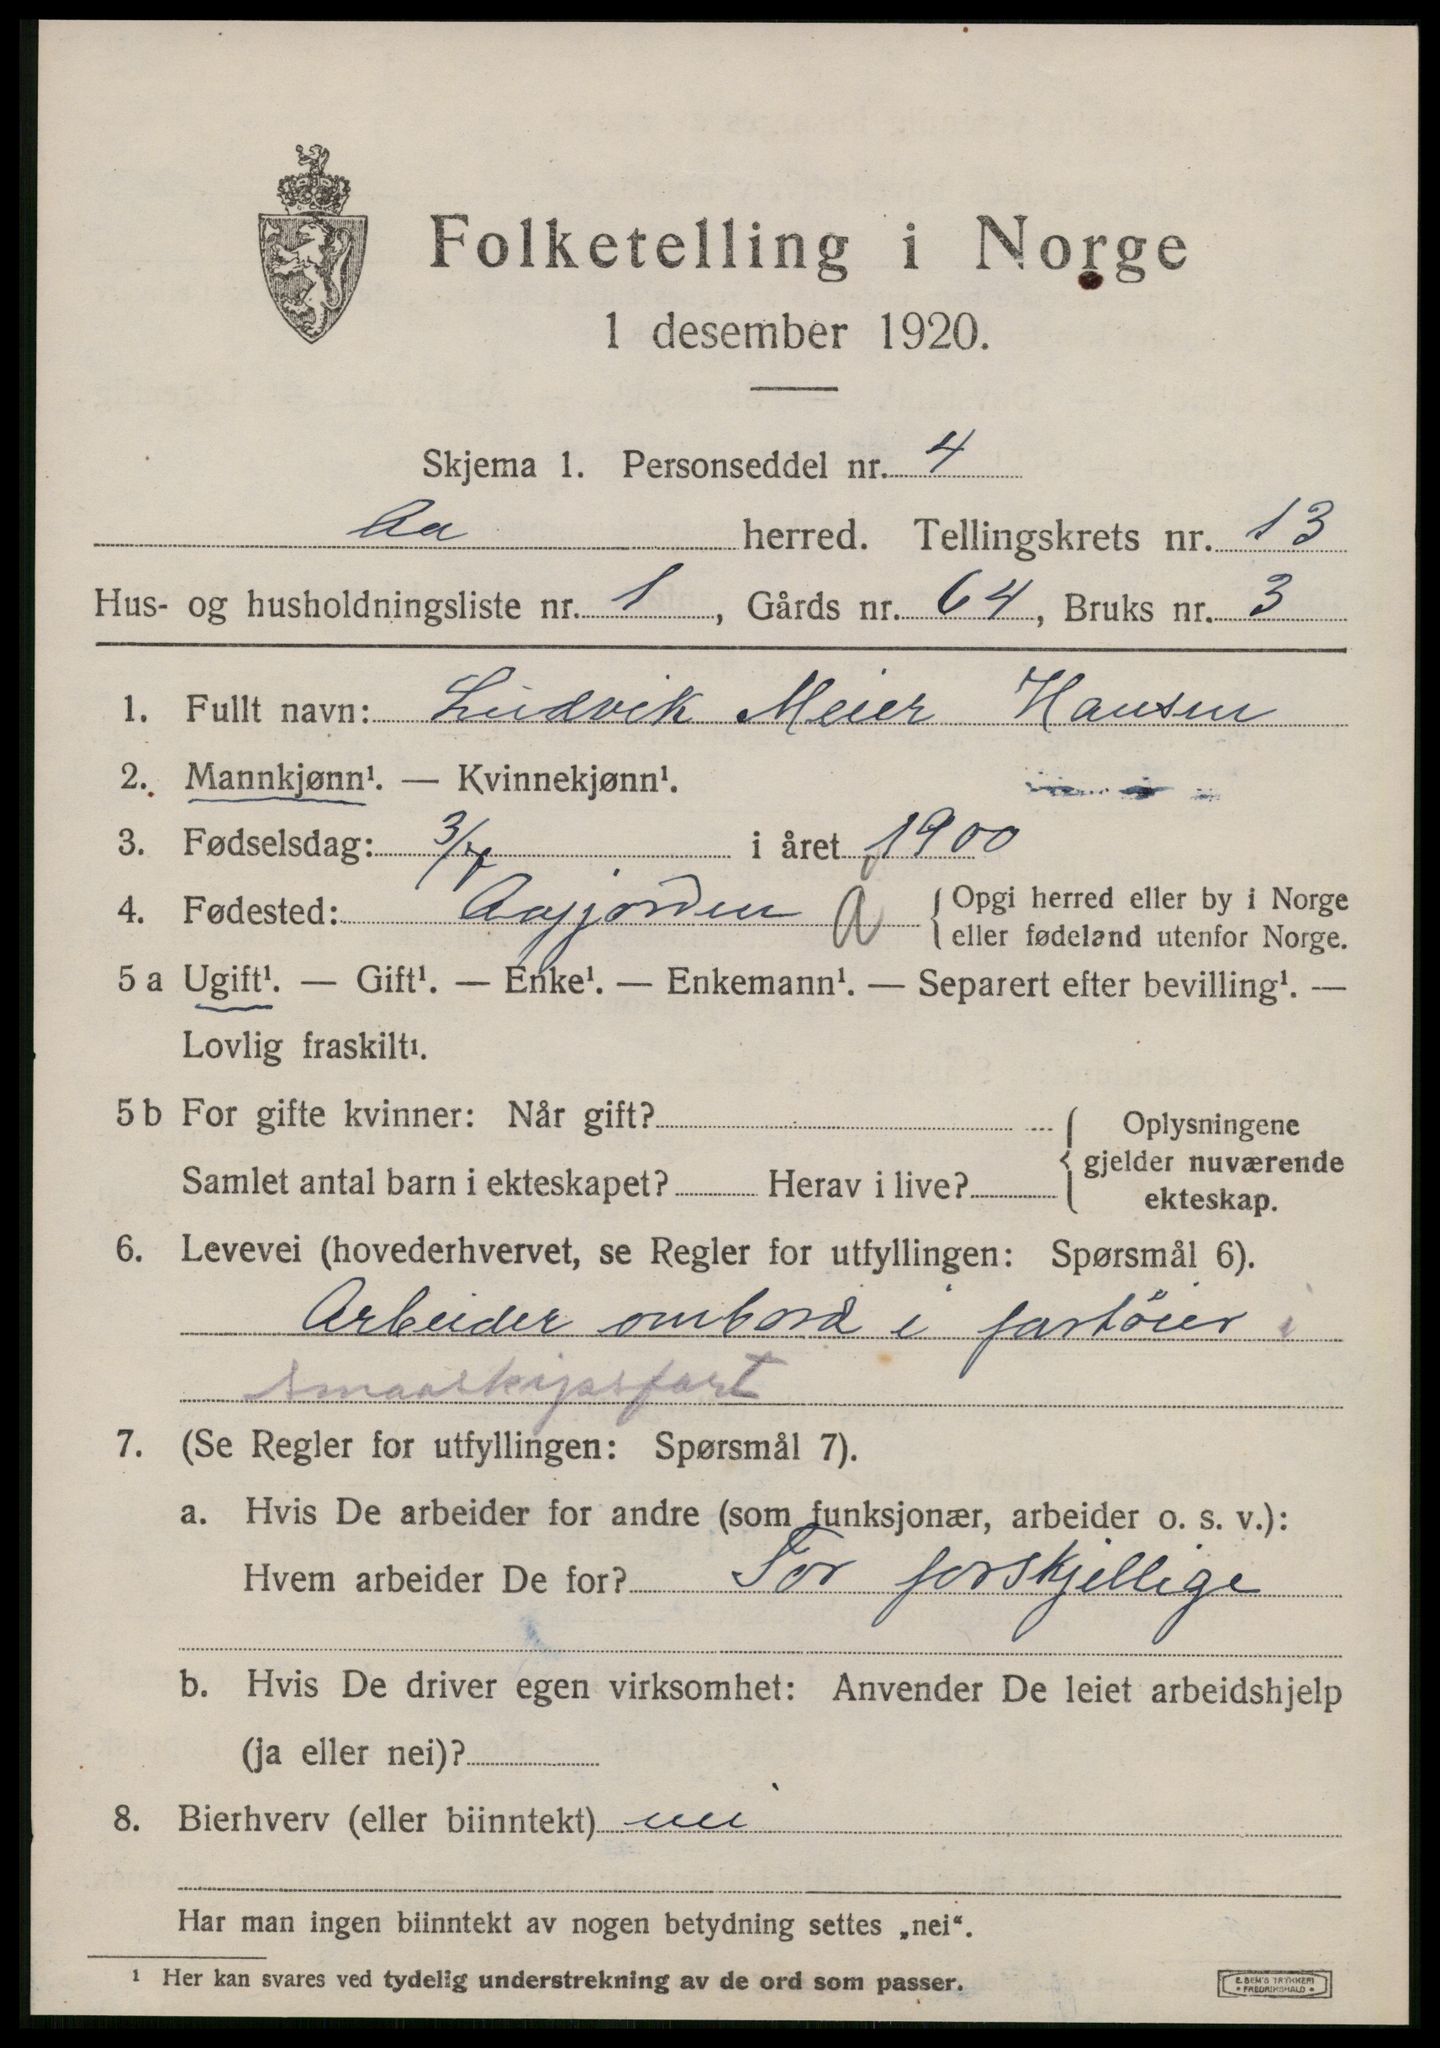 Folketelling i Norge
1 desember 1920.
Skjema 1. Personseddel nr. 4
Aa herred. Tellingskrets nr. 13
Hus- og husholdningsliste nr. 1, Gårds nr. 64, Bruks nr. 3
1. Fullt navn: Ludvik Meier Hansen
2. Mannkjønn¹. — Kvinnekjønn¹.
3. Fødselsdag: 3/ i året 1900
4. Fødested: Aafjorden a { Opgi herred eller by i Norge
eller fødeland utenfor Norge.
5 a Ugift¹. — Gift¹. — Enke¹. — Enkemann¹. — Separert efter bevilling¹. —
Lovlig fraskilt¹.
5 b For gifte kvinner: Når gift? { Oplysningene
gjelder nuværende
Samlet antal barn i ekteskapet? Herav i live? ekteskap.
6. Levevei (hovederhvervet, se Regler for utfyllingen: Spørsmål 6).
Arbeider ombord i fartöier i
smaaskipsfart
7. (Se Regler for utfyllingen: Spørsmål 7).
a. Hvis De arbeider for andre (som funksjonær, arbeider o. s. v.):
Hvem arbeider De for? For forskjellige
b. Hvis De driver egen virksomhet: Anvender De leiet arbeidshjelp
(ja eller nei)?
8. Bierhverv (eller biinntekt) nei
Har man ingen biinntekt av nogen betydning settes „nei“.
¹ Her kan svares ved tydelig understrekning av de ord som passer.
E. SEM'S TRYKKERI
• FREDRIKSHALD •